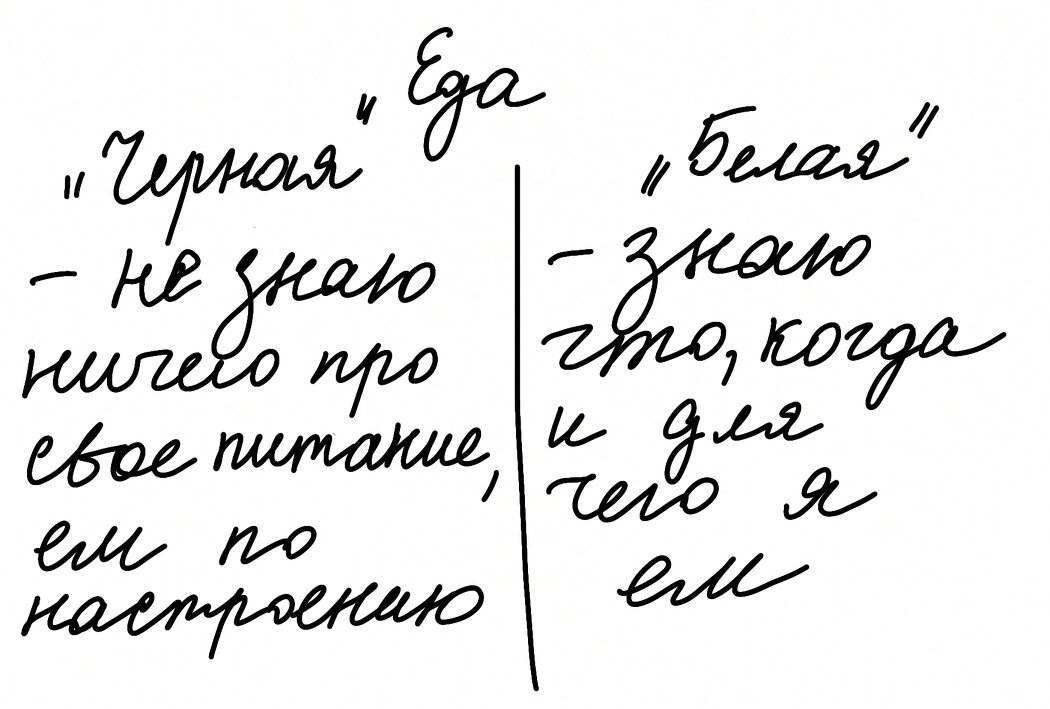 Еда
"Черная"
- не знаю
ничего про
свое питание,
ем по
настроению
"Белая"
- знаю
что, когда
и для
чего я
ем